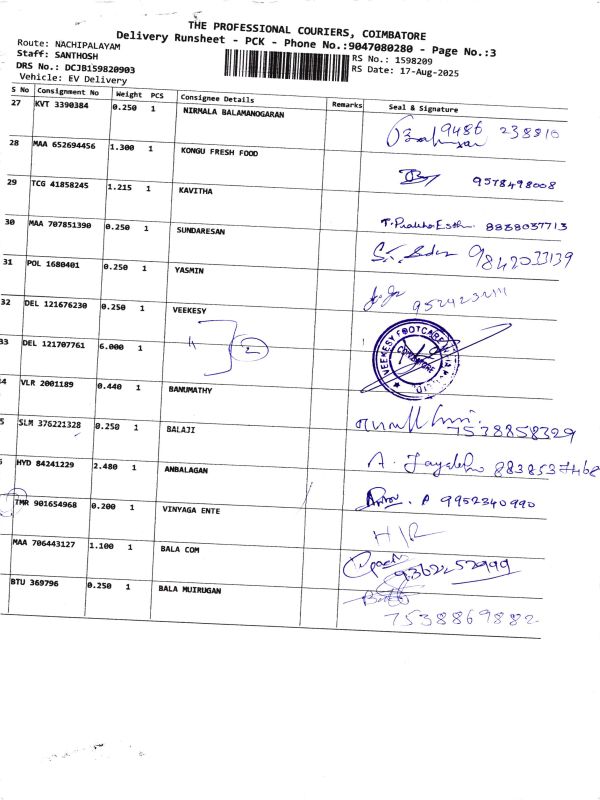 THE PROFESSIONAL COURIERS, COIMBATORE
Delivery Runsheet - PCK - Phone No.:9047080280 - Page No.:3
Route: NACHIPALAYAM
Staff: SANTHOSH
RS No.: 1598209
DRS No.: DCJB159820903
RS Date: 17-Aug-2025
Vehicle: EV Delivery
S No Consignment No Weight PCS Consignee Details Remarks Seal & Signature
27 KVT 3390384 0.250 1 NIRMALA BALAMANOGARAN 9486 238810
28 MAA 652694456 1.300 1 KONGU FRESH FOOD 9578498008
29 TCG 41858245 1.215 1 KAVITHA 8838037713
30 MAA 707851390 0.250 1 SUNDARESAN 9842033139
31 POL 1680401 0.250 1 YASMIN
32 DEL 121676230 0.250 1 VEEKESY
33 DEL 121707761 6.000 1 2
VEEKESY FOOTCARE COIMBATORE
4 VLR 2001189 0.440 1 BANUMATHY 7538858329
5 SLM 376221328 0.250 1 BALAJI 8838537468
HYD 84241229 2.480 1 ANBALAGAN 9952340990
TMR 901654968 0.200 1 VINYAGA ENTE H/R
MAA 706443127 1.100 1 BALA COM 9362252999
BTU 369796 0.250 1 BALA MUIRUGAN 7538869882